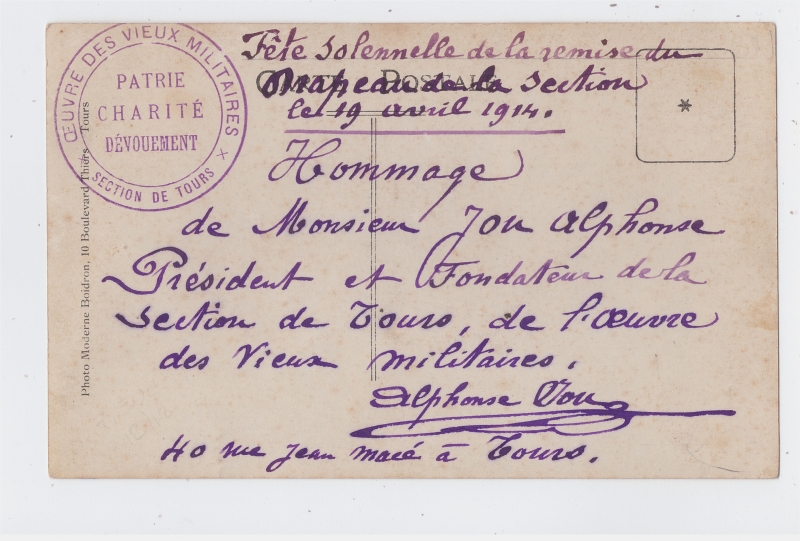 ŒUVRE DES VIEUX MILITAIRES
PATRIE
CHARITÉ
DÉVOUEMENT
SECTION DE TOURS
Fête solennelle de la remise du
CARTE POSTALE
Drapeau de la section
le 19 avril 1914.
*
Hommage
de Monsieur Jou Alphonse
Président et Fondateur de la
Section de Tours, de l'Œuvre
des Vieux militaires.
Alphonse Jou
40 rue Jean Macé à Tours.
Photo Moderne Boidron, 10 Boulevard Thiers - Tours